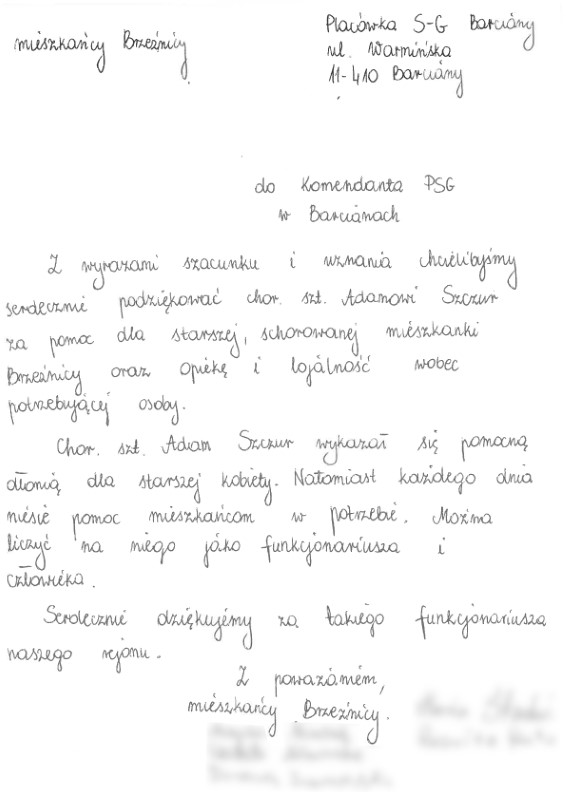 mieszkańcy Brzeźnicy
Placówka S-G Barciany
ul. Warmińska
11-410 Barciany
do Komendanta PSG
w Barcianach
Z wyrazami szacunku i uznania chcielibyśmy
serdecznie podziękować chor. szt. Adamowi Szczur
za pomoc dla starszej, schorowanej mieszkanki
Brzeźnicy oraz opiekę i lojalność wobec
potrzebującej osoby.
Chor. szt. Adam Szczur wykazał się pomocną
dłonią dla starszej kobiety. Natomiast każdego dnia
niesie pomoc mieszkańcom w potrzebie. Można
liczyć na niego jako funkcjonariusza i
człowieka.
Serdecznie dziękujemy za takiego funkcjonariusza
naszego rejonu.
Z poważaniem,
mieszkańcy Brzeźnicy.